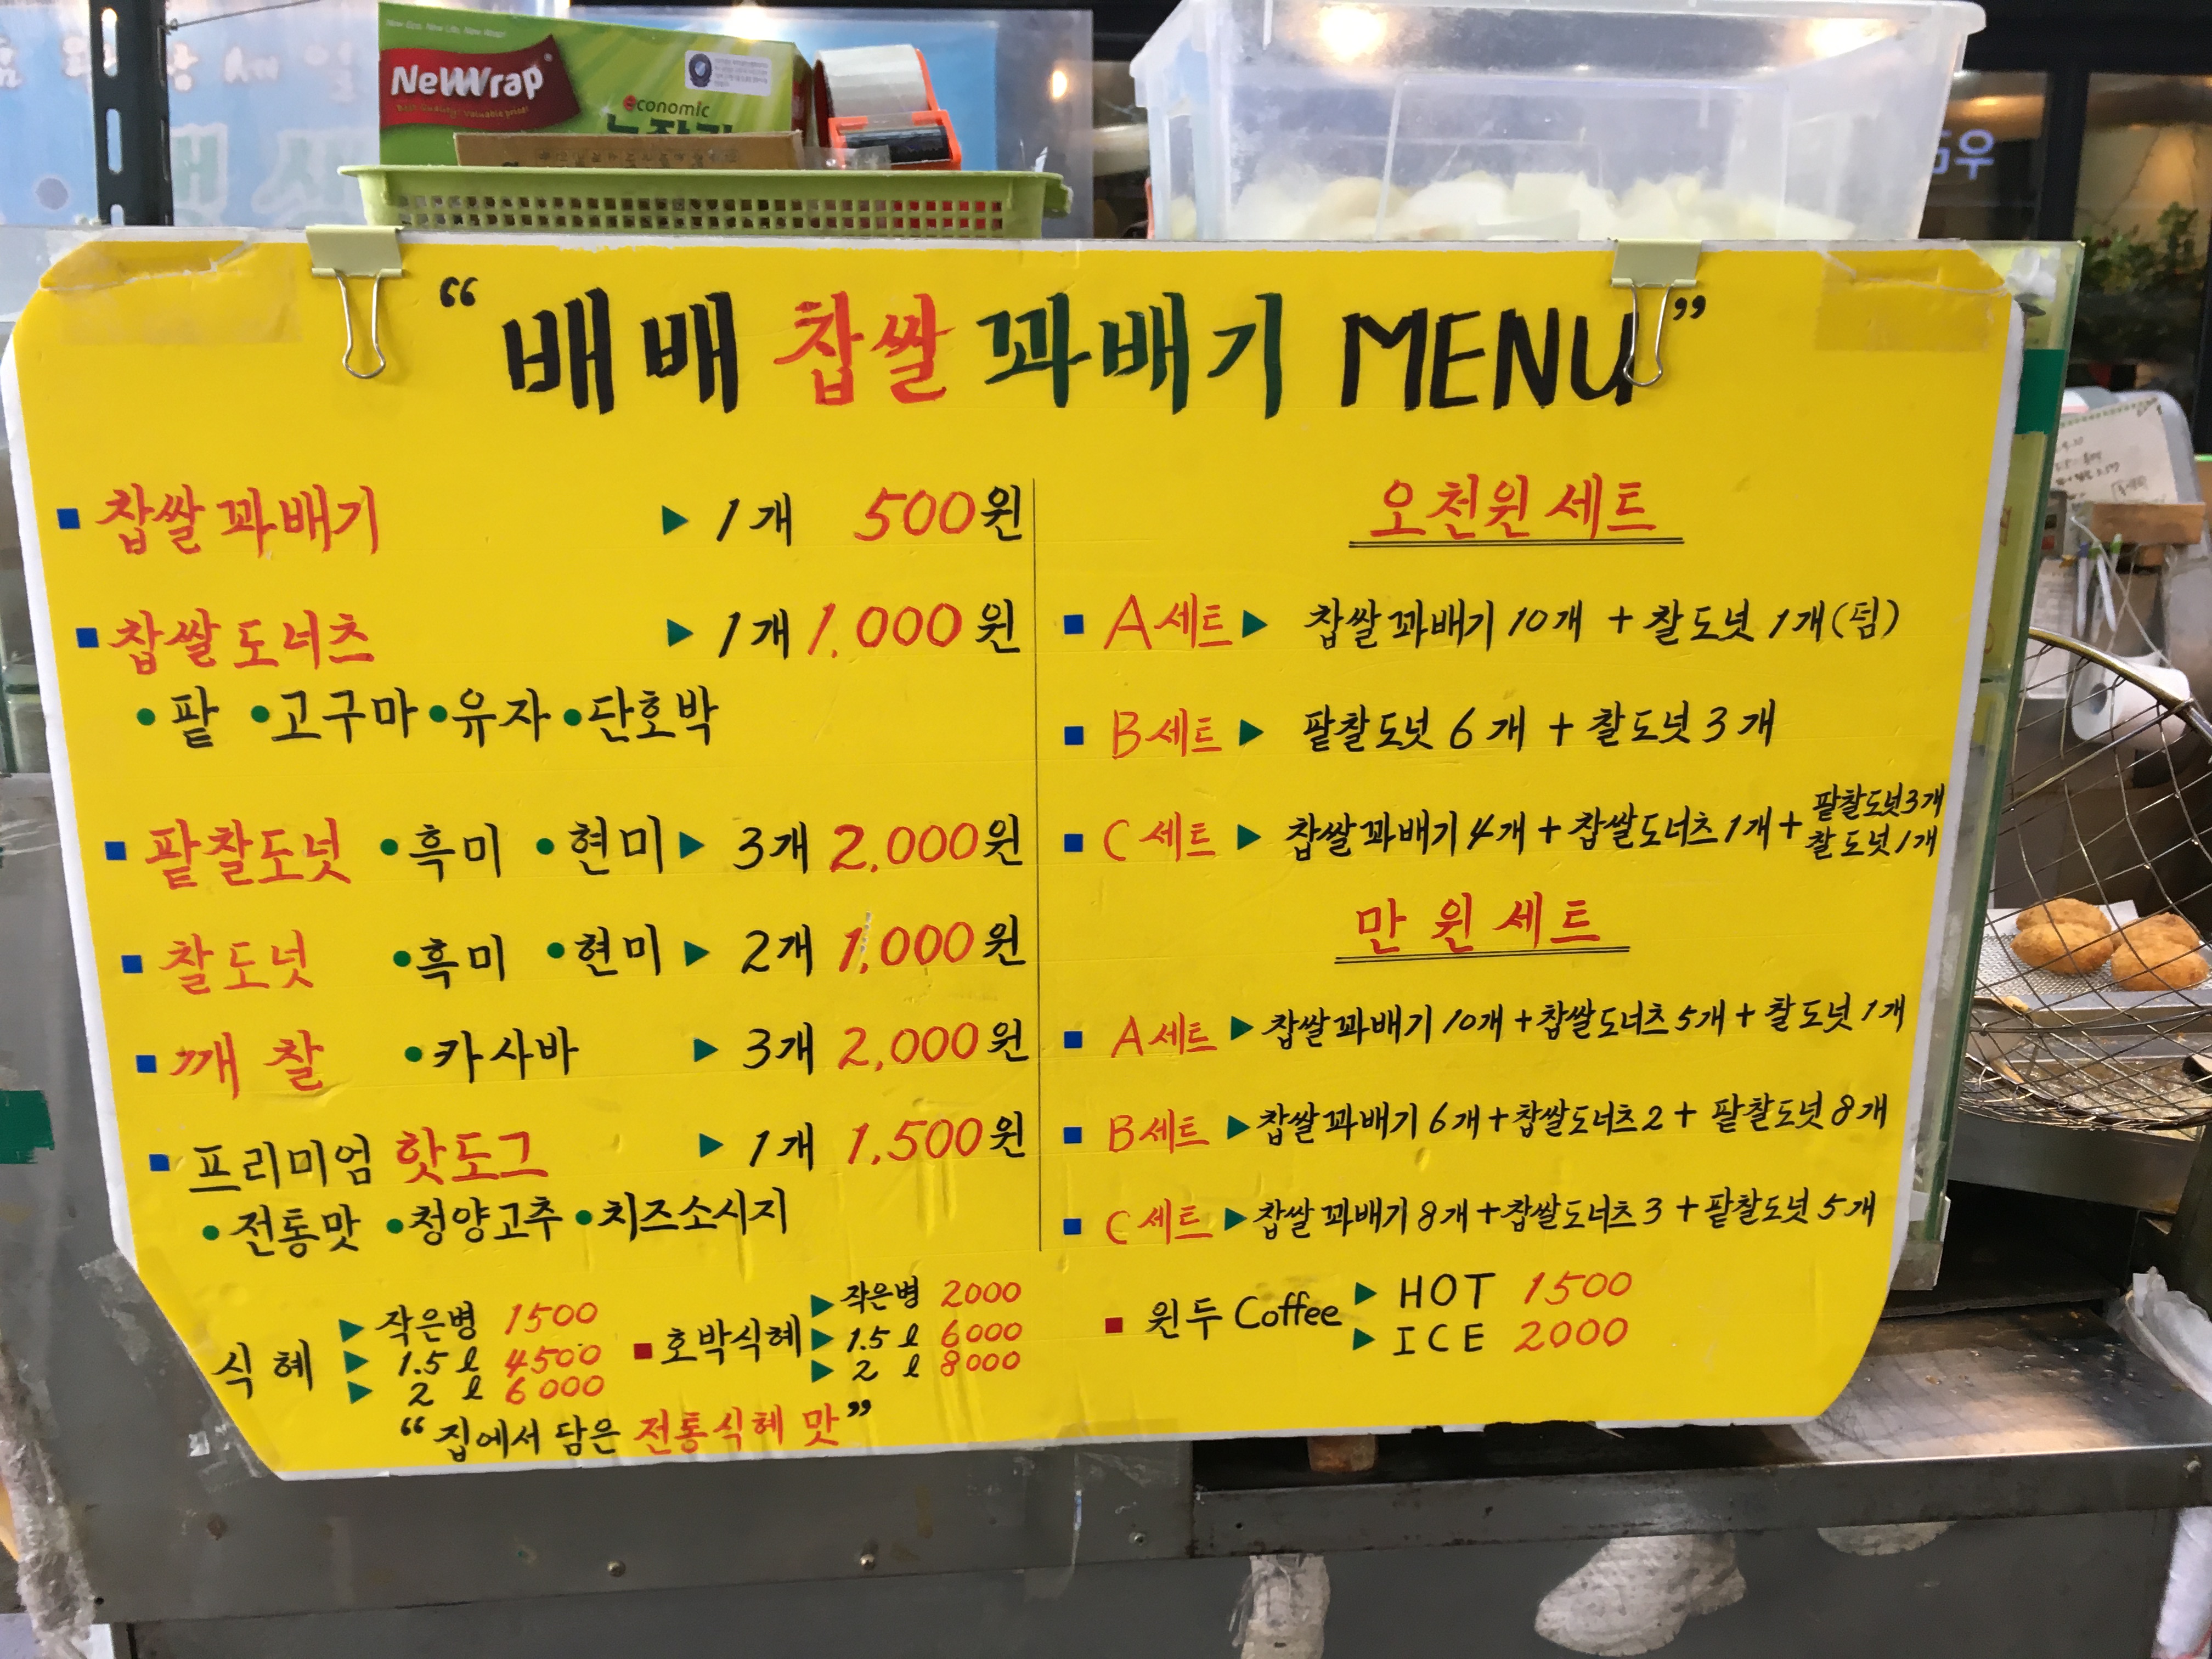 New Eco, New Life, New Wrap!
NeWWrap
Best Quality! Valuable price!
economic
“배배 찹쌀 꽈배기 MENU”
찹쌀 꽈배기 ▶ 1개 500원
찹쌀 도너츠 ▶ 1개 1,000원
• 팥 • 고구마 • 유자 • 단호박
팥찰도넛 • 흑미 • 현미 ▶ 3개 2,000원
찰도넛 • 흑미 • 현미 ▶ 2개 1,000원
깨찰 • 카사바 ▶ 3개 2,000원
프리미엄 핫도그 ▶ 1개 1,500원
• 전통맛 • 청양고추 • 치즈소시지
오천원 세트
A세트 ▶ 찹쌀 꽈배기 10개 + 찰도넛 1개(덤)
B세트 ▶ 팥찰도넛 6개 + 찰도넛 3개
C세트 ▶ 찹쌀 꽈배기 4개 + 찹쌀도너츠 1개 + 팥찰도넛 3개
찰도넛 1개
만원 세트
A세트 ▶ 찹쌀 꽈배기 10개 + 찹쌀도너츠 5개 + 찰도넛 1개
B세트 ▶ 찹쌀 꽈배기 6개 + 찹쌀도너츠 2 + 팥찰도넛 8개
C세트 ▶ 찹쌀 꽈배기 8개 + 찹쌀도너츠 3 + 팥찰도넛 5개
식혜 ▶ 작은병 1500
▶ 1.5ℓ 4500
▶ 2ℓ 6000
호박식혜 ▶ 작은병 2000
▶ 1.5ℓ 6000
▶ 2ℓ 8000
원두 Coffee ▶ HOT 1500
▶ ICE 2000
“집에서 담은 전통식혜 맛”